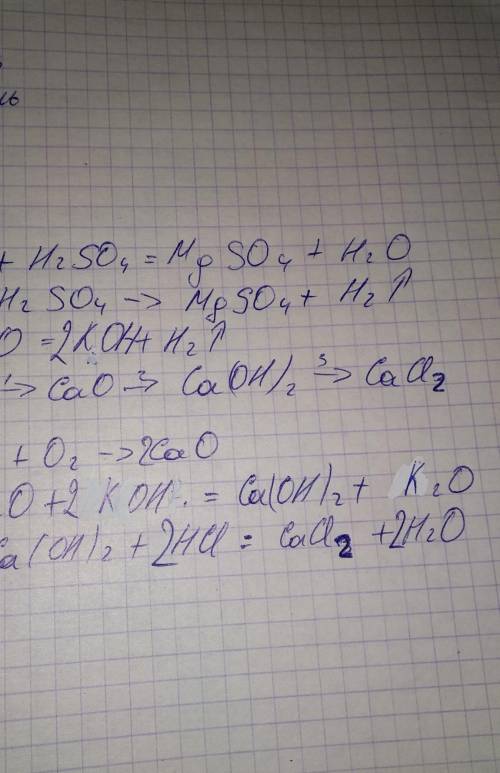 ль
+ H₂SO₄ = MgSO₄ + H₂O
H₂SO₄ -> MgSO₄ + H₂↑
O = 2KOH + H₂↑
1-> CaO 2-> Ca(OH)₂ 3-> CaCl₂
+ O₂ -> 2CaO
O + 2KOH = Ca(OH)₂ + K₂O
Ca(OH)₂ + 2HCl = CaCl₂ + 2H₂O